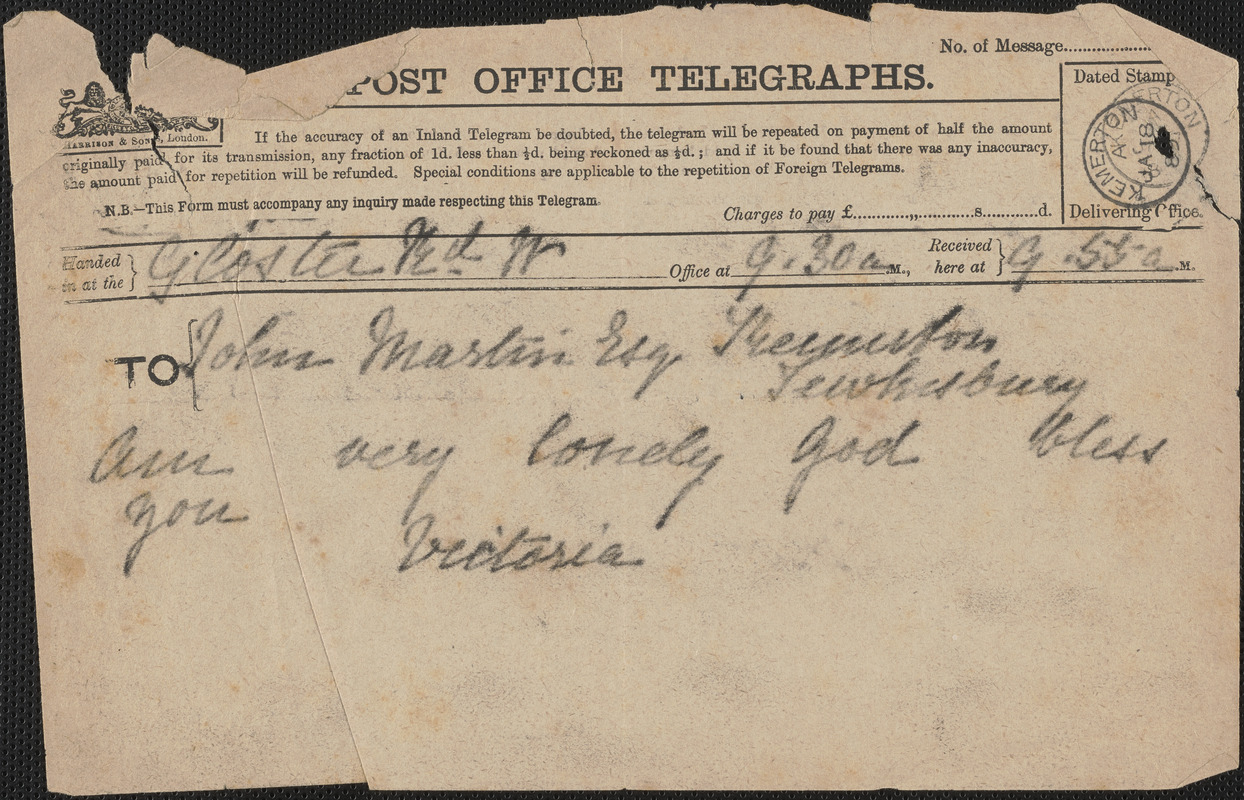 No. of Message......................
POST OFFICE TELEGRAPHS.
Dated Stamp
HARRISON & SONS, London.
If the accuracy of an Inland Telegram be doubted, the telegram will be repeated on payment of half the amount
originally paid for its transmission, any fraction of 1d. less than ½d. being reckoned as ½d.; and if it be found that there was any inaccuracy,
the amount paid for repetition will be refunded. Special conditions are applicable to the repetition of Foreign Telegrams.
N.B.—This Form must accompany any inquiry made respecting this Telegram.
KEMERTON
JA 18
Charges to pay £..............,,..............s..............d.
Delivering Office.
Handed in at the } Gloster Rd W Office at 9.30 a M., Received here at } 9.55 a M.
TO { John Martin Esq Kemerton
Tewkesbury
Am very lonely God bless
you
Victoria